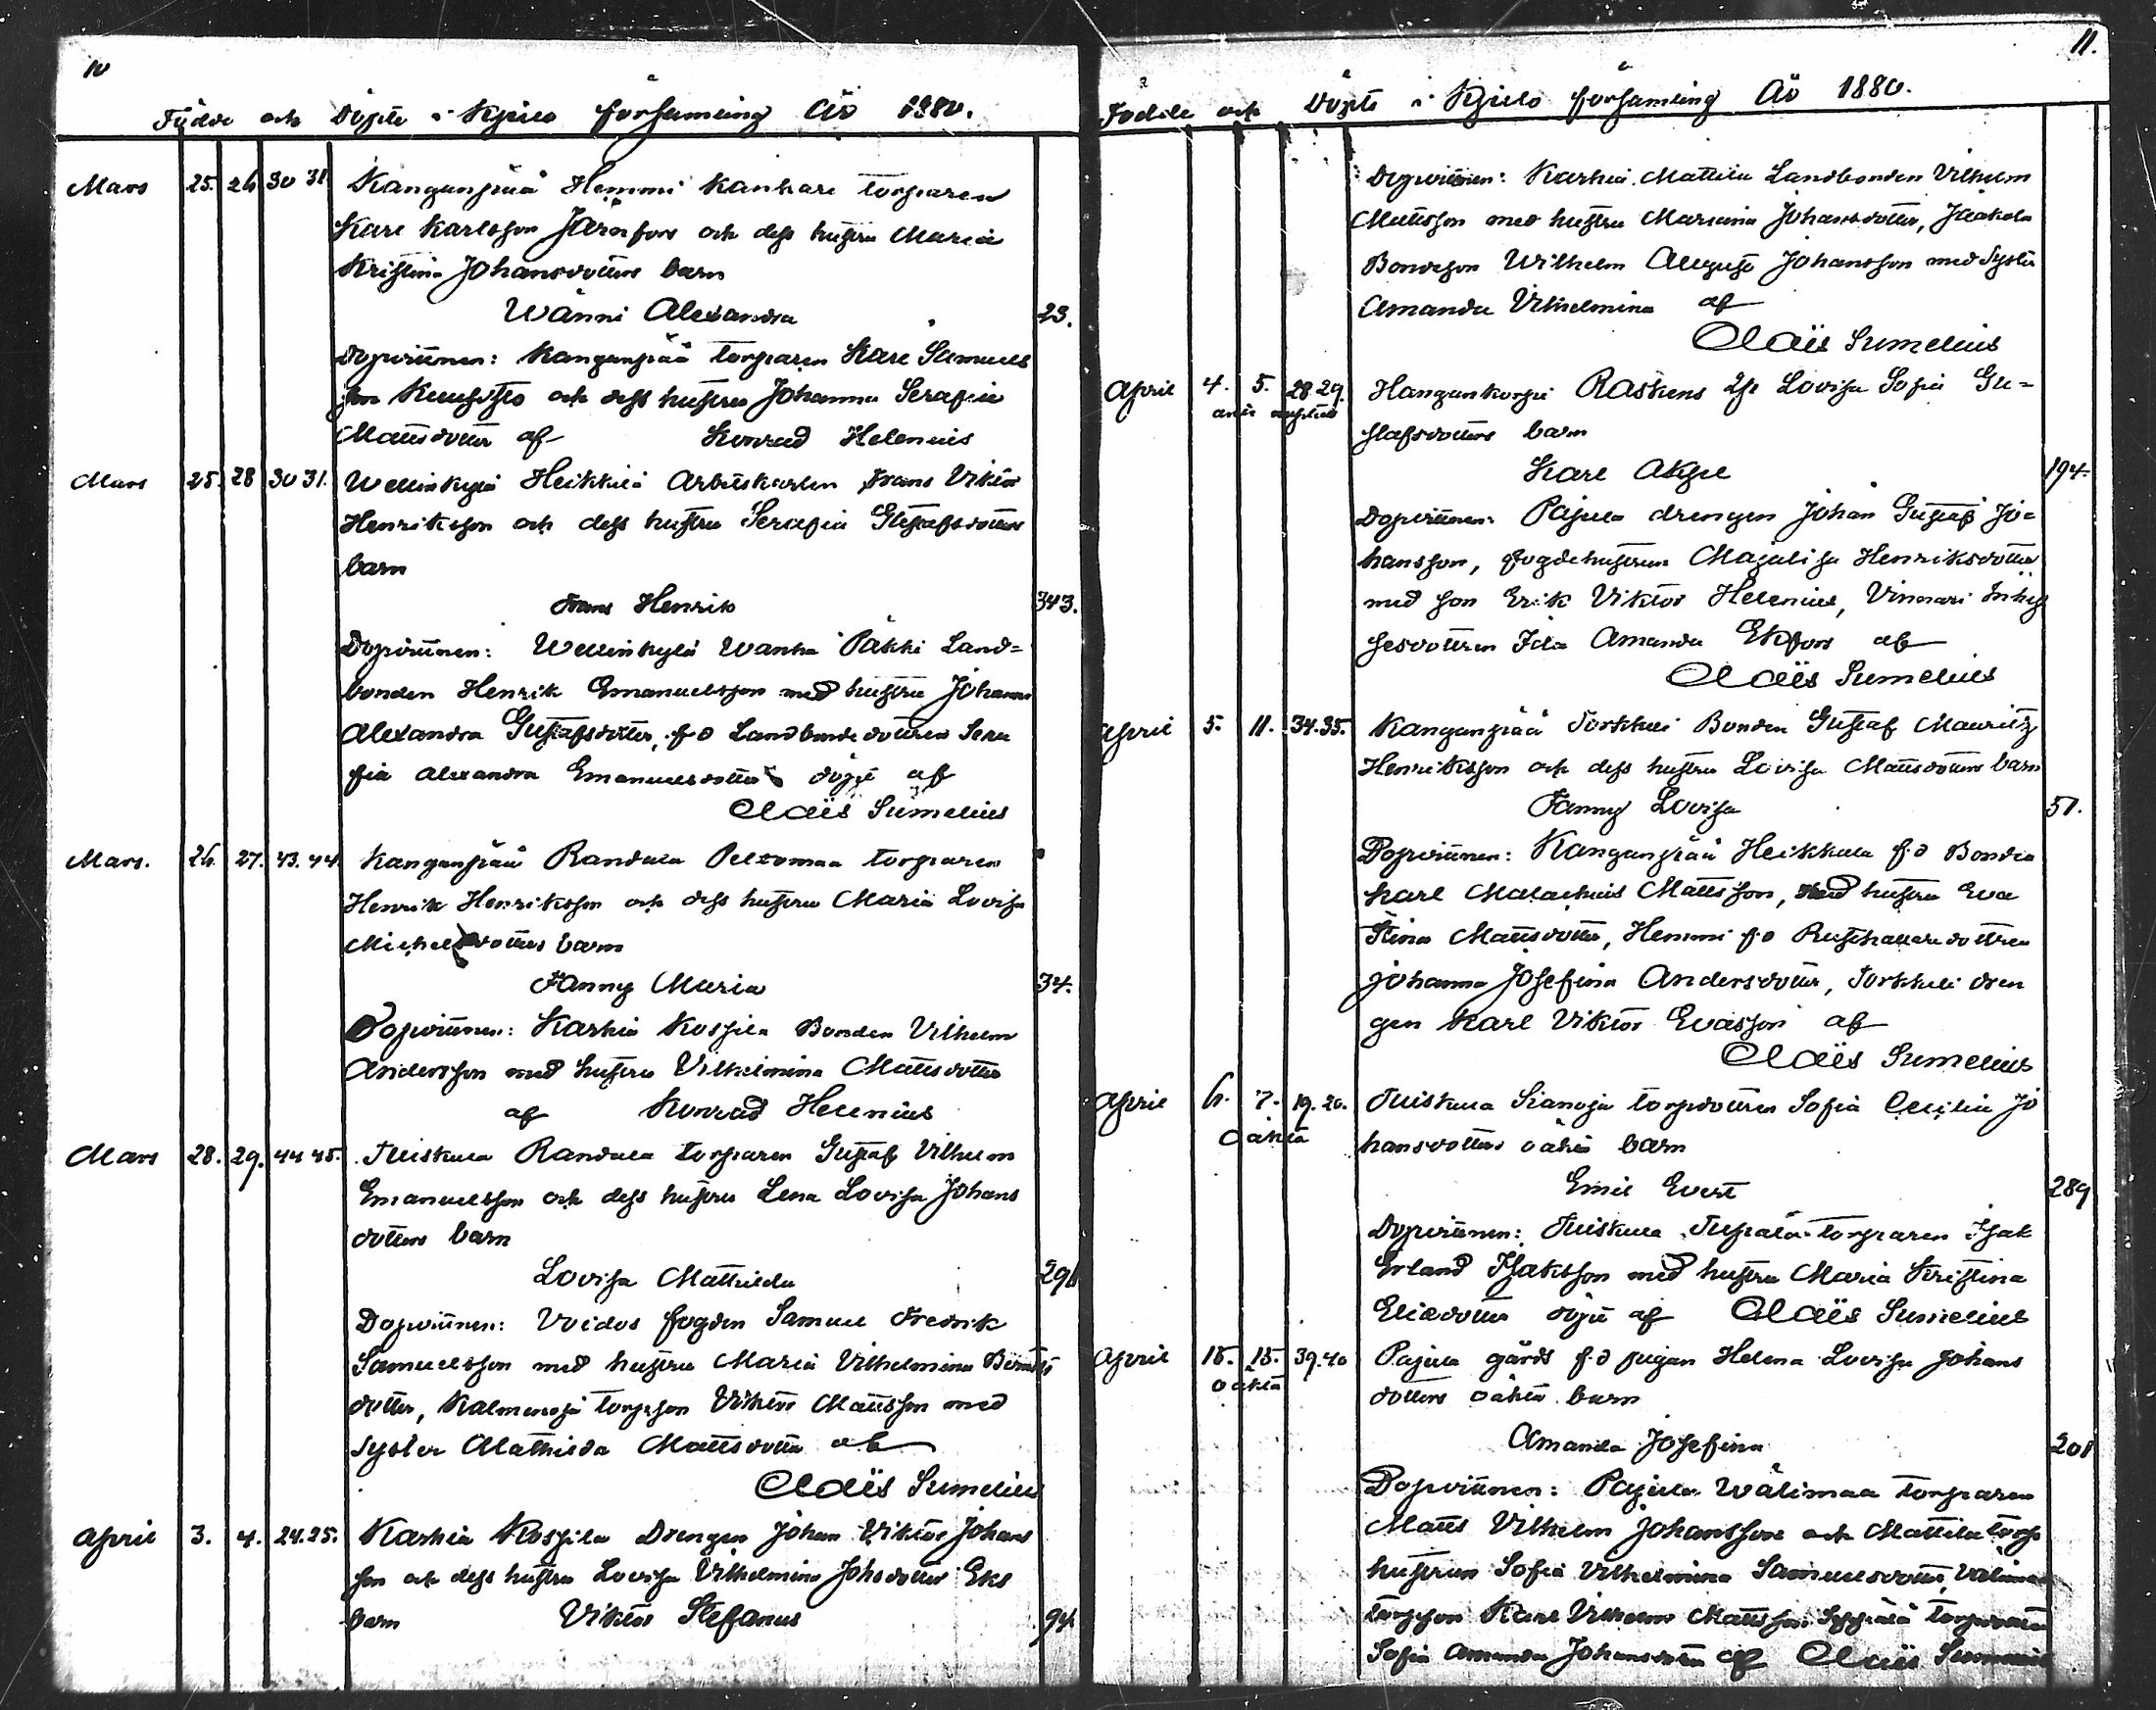 10
Födde och Döpte i Kjulo församling År 1880.
Mars 25. 26 30 31 Kanganpää Hemmi Kankare torparen
Karl Karlsson och dess hustru Maria
Kristina Johansdotters barn
Wänni Alexandra 23.
Dopvittnen: Kanganpää torparen Karl Samuels
son och dess hustru Johanna Serafia
Mattsdotter af Konrad Helenius
Mars 25. 28 30 31. Wellinkylä Heikkilä Arbetskarlen Frans Viktor
Henriksson och dess hustru Serafia Gustafsdotters
barn
Frans Henrik 343.
Dopvittnen: Wellinkylä Wanha Päkki Land=
bonden Henrik Emanuelsson med hustru Johanna
Alexandra Gustafsdotter, f.d Landbondedottren Sera
fia Alexandra Emanuelsdotter döpt af
Claës Sumelius
Mars. 26. 27. 43. 44 Kanganpää Randala Peltomaa torparen
Henrik Henriksson och dess hustru Maria Lovisa
Michelsdotters barn
Fanny Maria 34.
Dopvittnen: Karhia Kospila Bonden Vilhelm
Andersson med hustru Vilhelmina Mattsdotter
af Konrad Helenius
Mars 28. 29. 44 45. Tuiskula Randala torparen Gustaf Vilhelm
Emanuelsson och dess hustru Lena Lovisa Johans
dotters barn
Lovisa Mathilda 296
Dopvittnen: Voidos fogden Samuel Fredrik
Samuelsson med hustru Maria Vilhelmina
dotter, torpson Viktor Mattsson med
syster Mathilda Mattsdotter af
Claës Sumelius
April 3. 4. 24.25. Karhia Kospila Drengen Johan Viktor Johans
son och dess hustru Lovisa Vilhelmina Johsdotter Eks
barn Viktor Stefanus 94
11.
Födde och Döpte i Kjulo församling År 1880.
Dopvittnen: Karhia Mattila Landbonden Vilhelm
Mattsson med hustru Mariana Johansdotter, Jaakola
Bondeson Wilhelm August Johansson med Syster
Amanda Vilhelmina af
Claës Sumelius
April 4. 5. 28.29. Hangankorpi Raskens Lovisa Sofia Gu=
stafsdotters barn
Karl Axel 194.
Dopvittnen: Pajula drengen Johan Gustaf Jo=
hansson, fogdehustrun Majalisa Henriksdotter
med son Erik Viktor Helenius, Vinnari Inhys
gesdottren Ida Amanda Ekfors af
Claës Sumelius
April 5. 11. 34.35. Kanganpää Torkkeli Bonden Gustaf Mauritz
Henriksson och dess hustru Lovisa Mattsdotters barn
Fanny Lovisa 51.
Dopvittnen: Kanganpää Heikkala f.d Bonden
Karl Malachias Mattsson, med hustru Eva
Stina Mattsdotter, Hemmi f.d Rusthållaredottren
Johanna Josefina Andersdotter, Torkkeli dren
gen Karl Viktor Evasson af
Claës Sumelius
April 6. 7. 19. 20. Tuiskula Sianoja torpdottren Sofia Cecilia Jo
oäkta hansdotters oäkta barn
Emil Evert 289
Dopvittnen: Tuiskula torparen Isak
Erland Isaksson med hustru Maria Kristina
Eliedotter döpt af Claës Sumelius
April 15. 15. 39.40 Pajula gårds f.d pigan Helena Lovisa Johans
oäkta dotters oäkta barn
Amanda Josefina 201
Dopvittnen: Pajula Wälimaa torparen
Matts Vilhelm Johansson och Mattila torp
hustrun Sofia Vilhelmina Samuelsdotter, Välimaa
torpson Karl Vilhelm Mattsson, Seppälä torpdottren
Sofia Amanda Johansdotter af Claës Sumelius